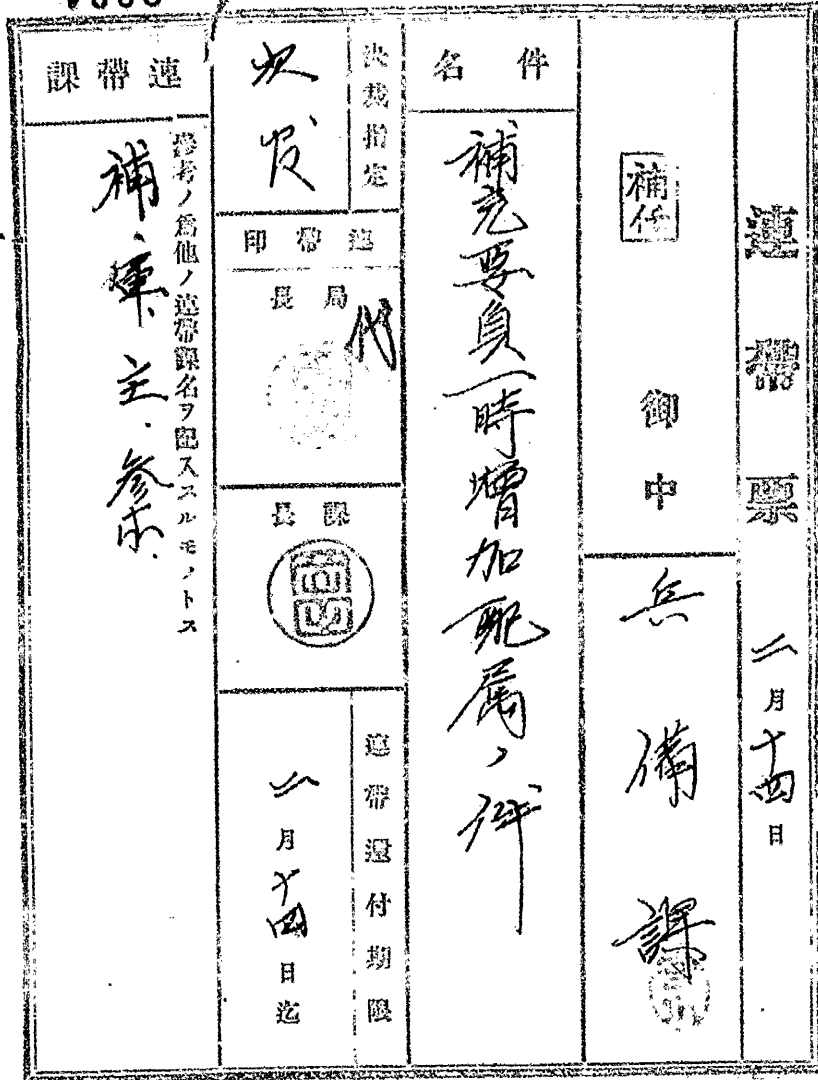 連帶票 二月十四日
補任 御中
兵備課
件名
補充要員一時増加配属ノ件
決裁指定
次
連帶印
局長
代
課長
連帶還付期限
二月十四日迄
連帶課
參考ノ爲他ノ連帶課名ヲ記入スルモノトス
補、軍、主、參